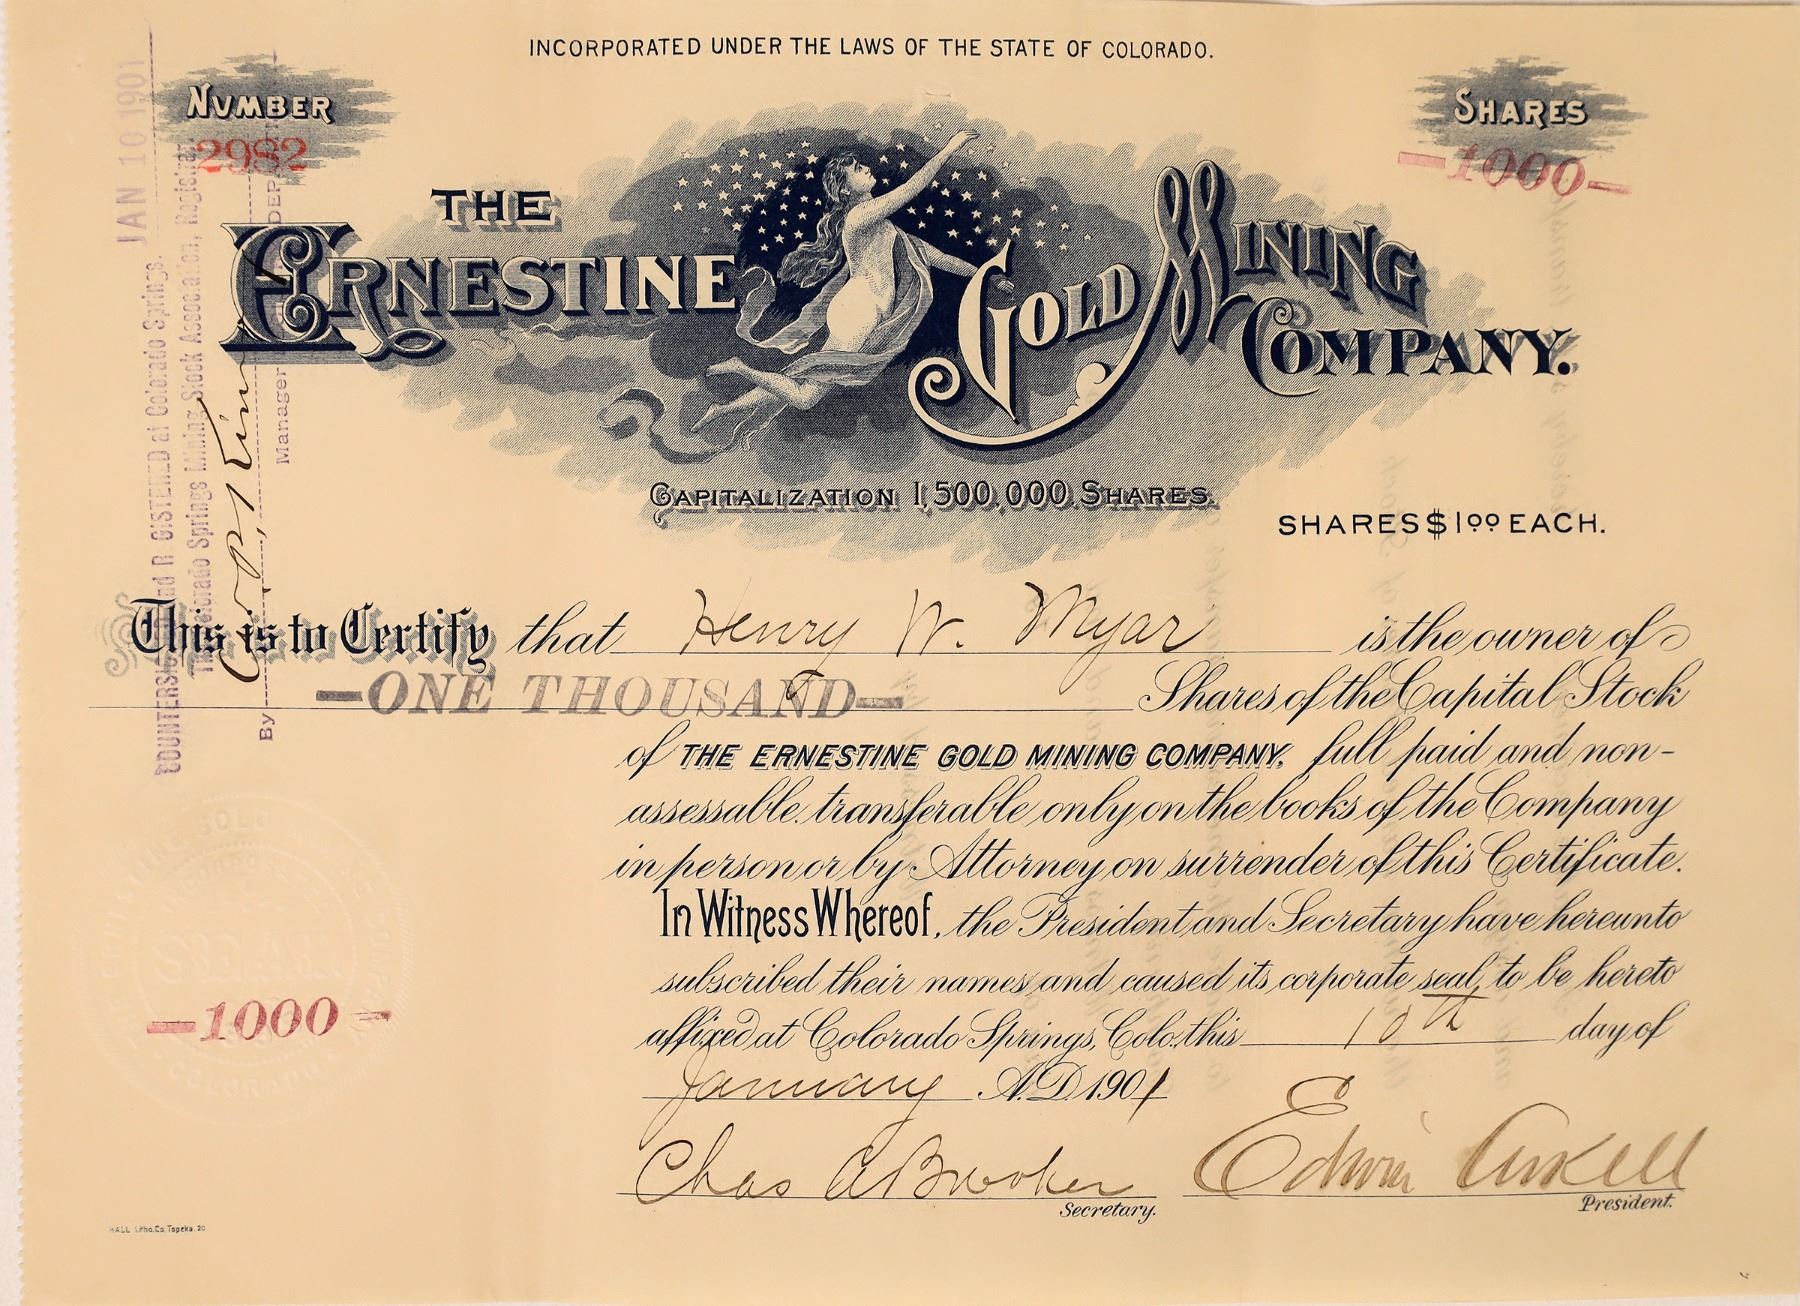 INCORPORATED UNDER THE LAWS OF THE STATE OF COLORADO.
NUMBER
2982
SHARES
—1000—
THE
ERNESTINE GOLD MINING
COMPANY.
CAPITALIZATION 1,500,000 SHARES.
SHARES $1.00 EACH.
This is to Certify that Henry W. Myar is the owner of
—ONE THOUSAND— Shares of the Capital Stock
of THE ERNESTINE GOLD MINING COMPANY, full paid and non-
assessable, transferable only on the books of the Company
in person or by Attorney on surrender of this Certificate.
In Witness Whereof, the President and Secretary have hereunto
subscribed their names and caused its corporate seal, to be hereto
affixed at Colorado Springs, Colo. this 10th day of
January A.D. 1901
Chas A Brooker
Secretary.
Edwin
President.
—1000—
COLORADO
JAN 10 1901
COUNTERSIGNED and REGISTERED at Colorado Springs.
The Colorado Springs Mining Stock Association, Registrar,
By
Manager
HALL Litho. Co. Topeka. 20